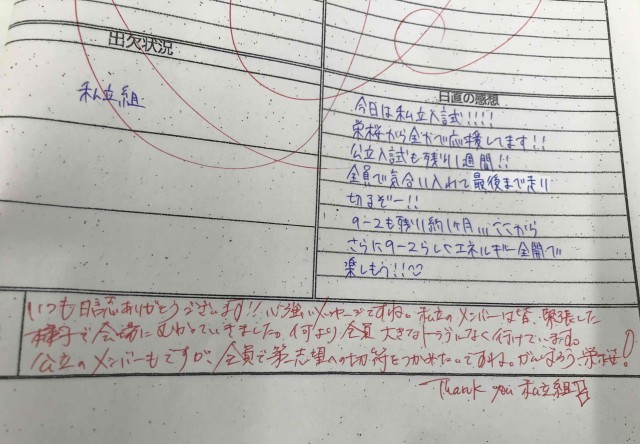 出欠状況
私立組
日直の感想
今日は私立入試!!!!
栄桜から全力で応援してます!!
公立入試も残り1週間!!
全員で気合い入れて最後まで走り
切るぞー!!
9-2も残り約1ヶ月,,,ここから
さらに9-2らしくエネルギー全開で
楽しもう!!
いつも日誌ありがとうございます!!心強いメッセージですね。私立のメンバーは皆、緊張した
様子で会場にむかっていきました。何より全員大きなトラブルなく行けています。
公立のメンバーもですが、全員で第一志望への切符をつかみたいですね。がんばろう
Thank you 私立組